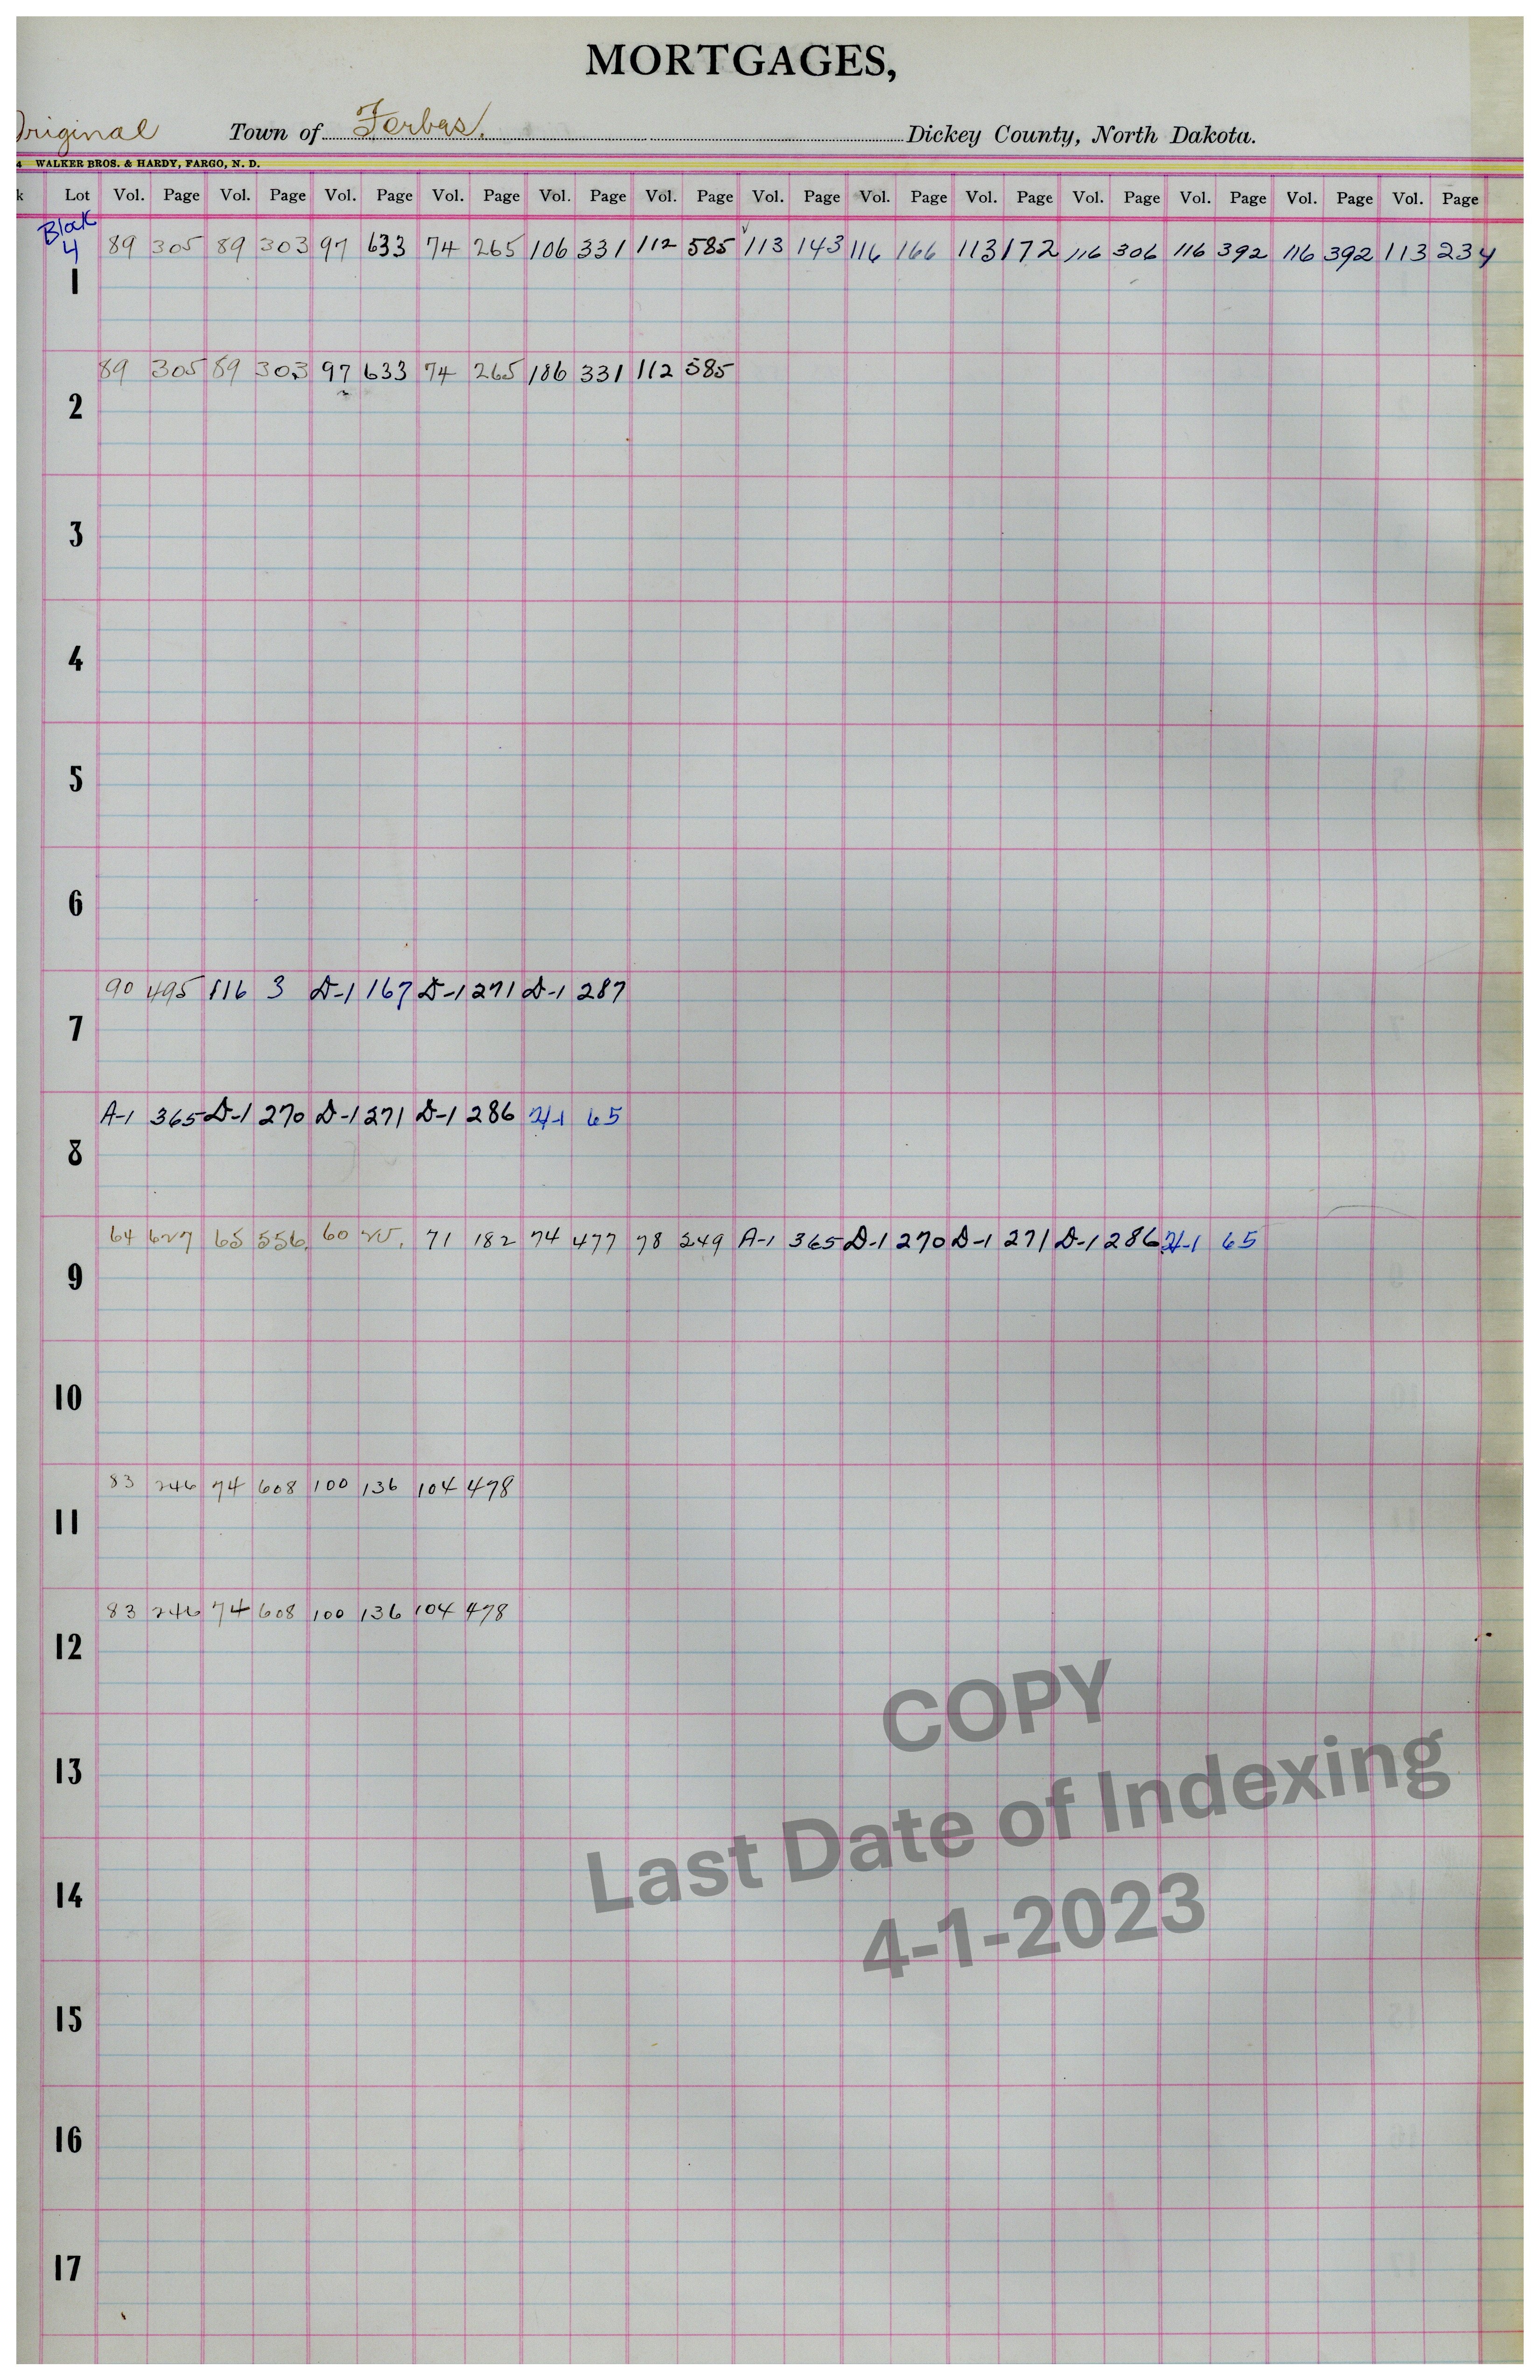 MORTGAGES,
Original Town of Forbes. Dickey County, North Dakota.
4 WALKER BROS. & HARDY, FARGO, N. D.
k Lot Vol. Page Vol. Page Vol. Page Vol. Page Vol. Page Vol. Page Vol. Page Vol. Page Vol. Page Vol. Page Vol. Page Vol. Page Vol. Page
Block
4 89 305 89 303 97 633 74 265 106 331 112 585 113 143 116 166 113 172 116 306 116 392 116 392 113 234
1
89 305 89 303 97 633 74 265 106 331 112 585
2
3
4
5
6
90 495 116 3 D-1 167 D-1 271 D-1 287
7
A-1 365 D-1 270 D-1 271 D-1 286 H-1 65
8
64 627 65 556. 60 25. 71 182 74 477 78 249 A-1 365 D-1 270 D-1 271 D-1 286 H-1 65
9
10
83 246 74 608 100 136 104 478
11
83 246 74 608 100 136 104 478
12
13
14
15
16
17
COPY
Last Date of Indexing
4-1-2023